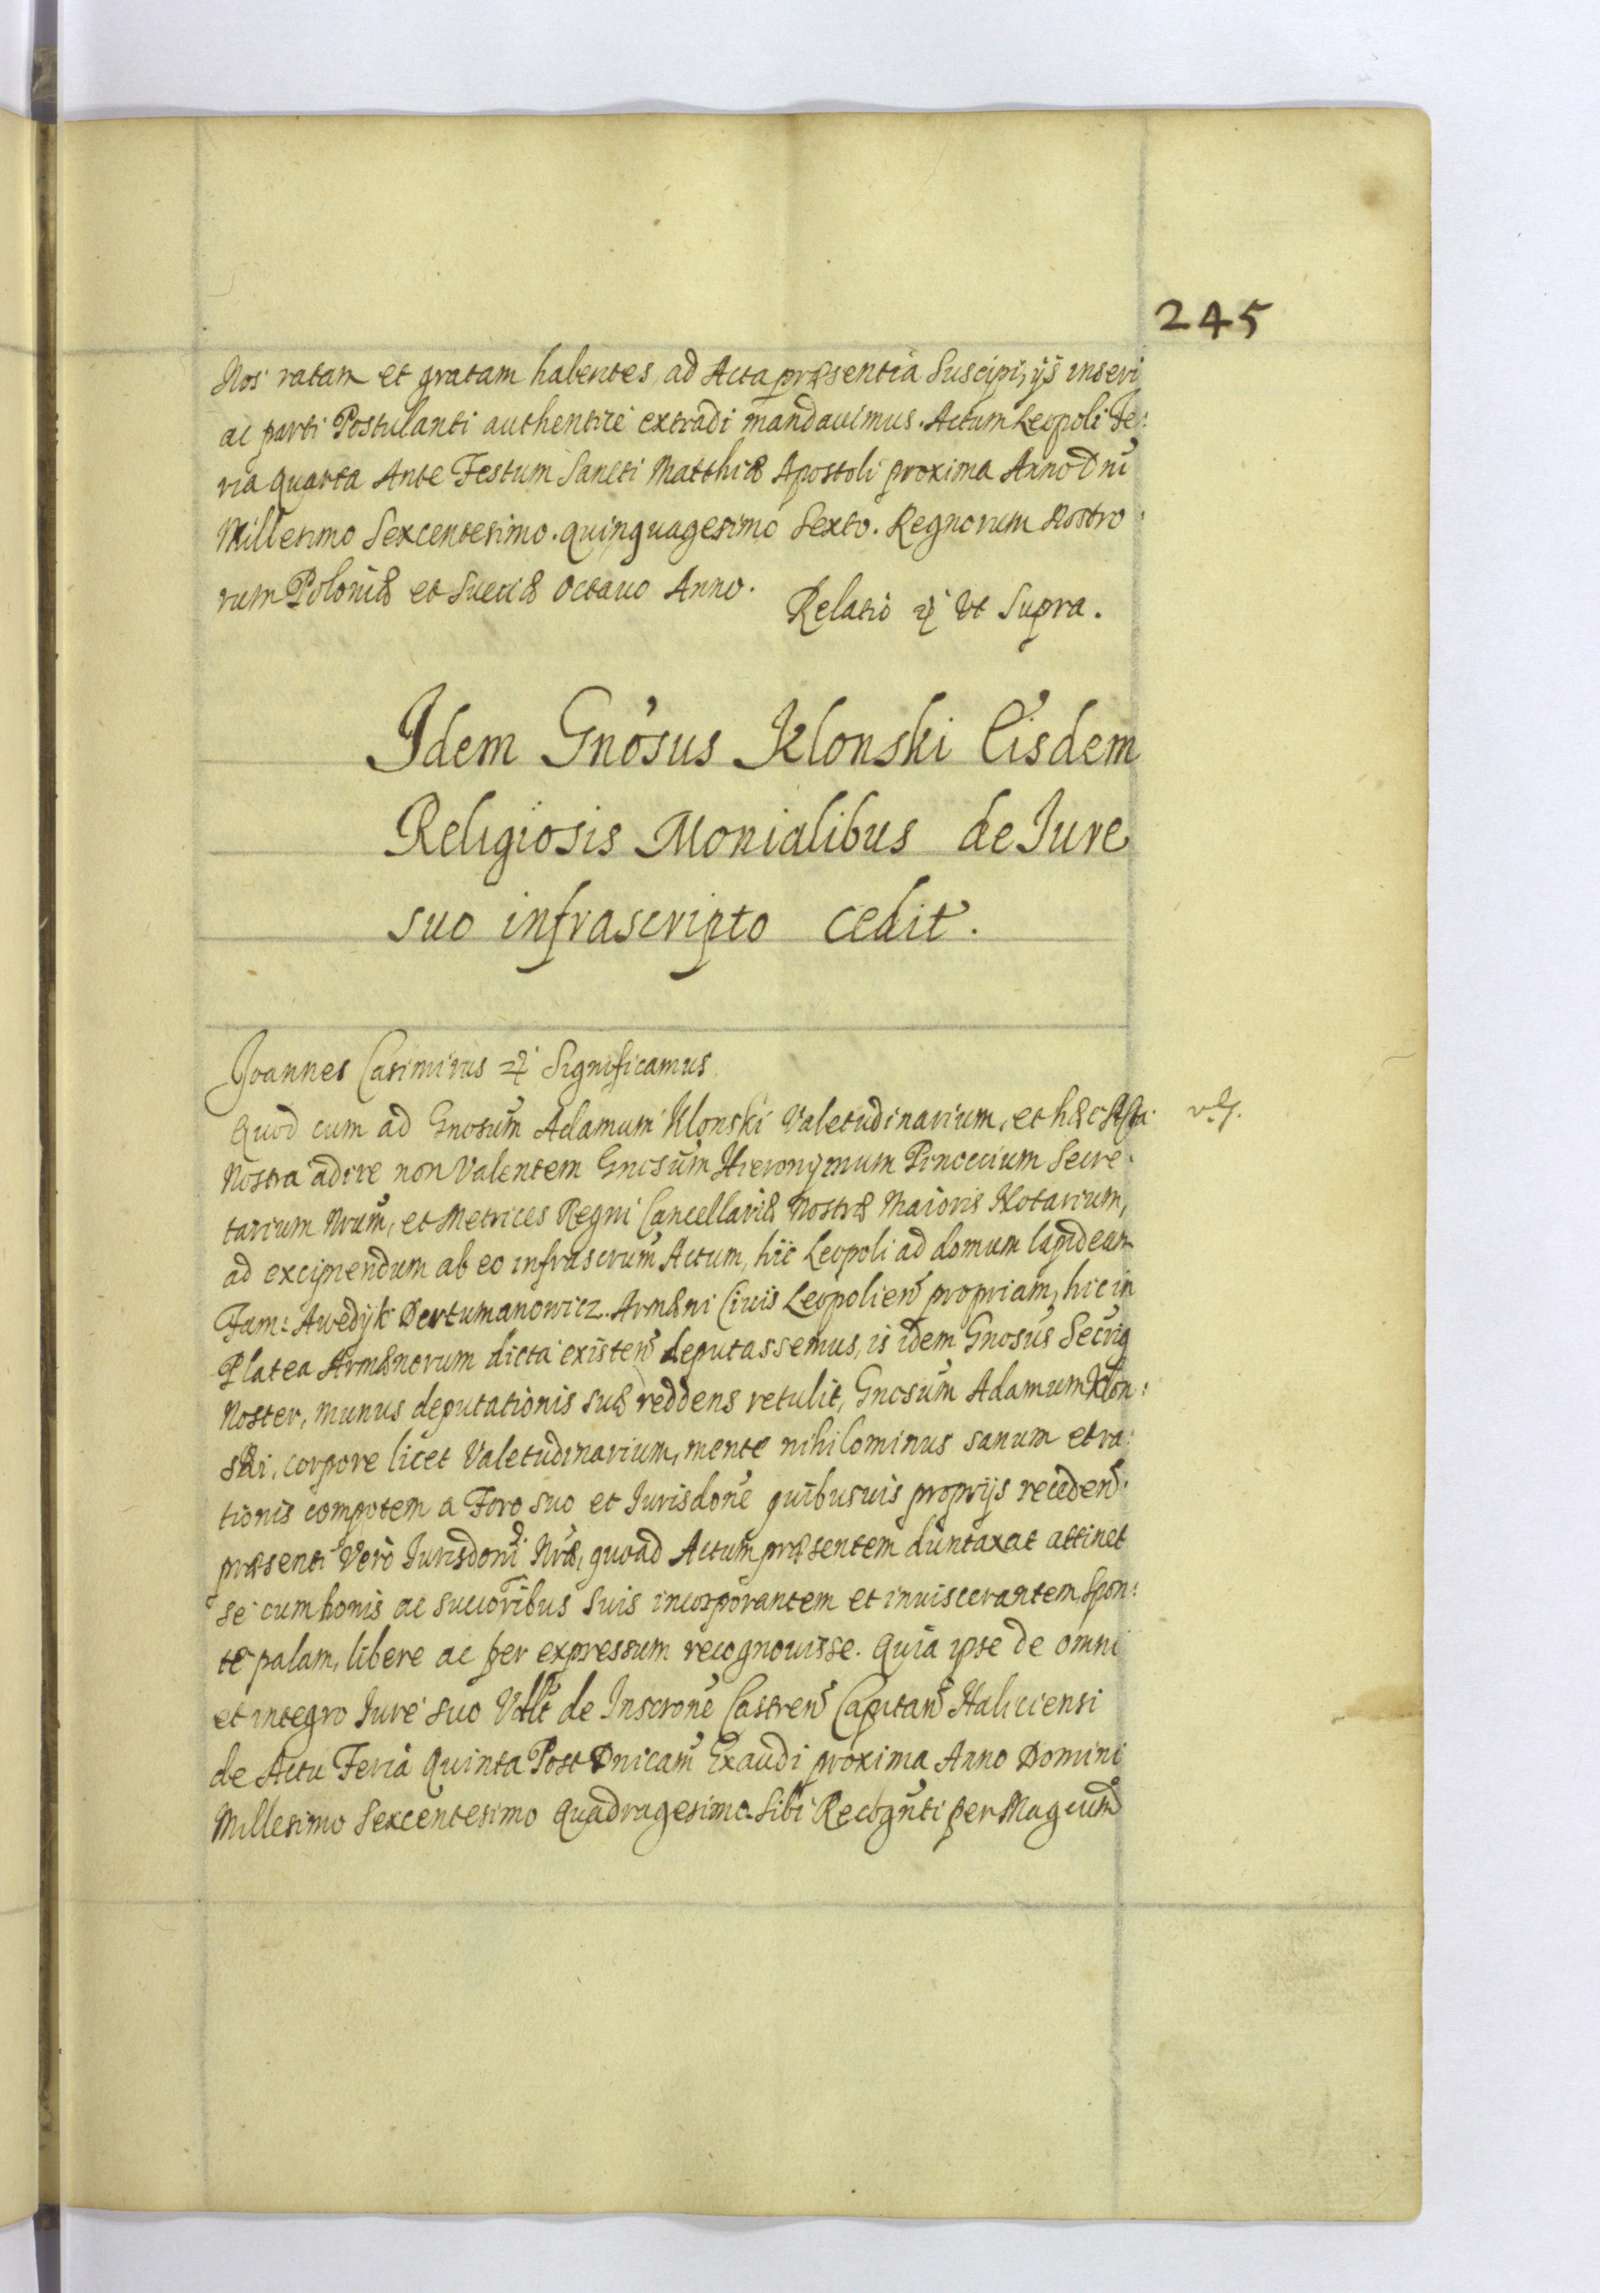 245
Nos ratam et gratam habentes, ad Acta præsentia Suscipi, ijs inseri
ac parti Postulanti authentice extradi mandauimus. Actum Leopoli Fe:
ria quarta Ante Festum Sancti Matthiæ Apostoli proxima Anno Dni
Millesimo Sexcentesimo. quinquagesimo Sexto. Regnorum Nostro:
rum Poloniæ et Sueciæ Octauo Anno.
Relatio Ut Supra.
Idem Gnosus Klonski Eisdem
Religiosis Monialibus de Iure
suo infrascripto cedit.
Joannes Casimirus Significamus
Quod cum ad Gnosum Adamum Klonski Valetudinarium, et hæc Acta
Nostra adire non Valentem Gnosum Hieronymum Pinoccium Secre:
tarium Nrum, et Metrices Regni Cancellariæ Nostræ Maioris Notarium,
ad excipiendum ab eo infrascrum Actum, hic Leopoli ad domum lapideam
Fam: Awedyk Dertumanowicz. Armæni Ciuis Leopolien propriam, hic in
Platea Armænorum dicta existen deputassemus, is idem Gnosus Secrig
Noster, munus deputationis suæ reddens retulit, Gnosum Adamum Klon:
ski, corpore licet Valetudinarium, mente nihilominus sanum et ra:
tionis compotem a Foro suo et Iurisdone quibusuis proprijs receden:
præsenti Vero Iurisdoni Nræ, quoad Actum præsentem duntaxat attinet
se cum bonis ac succoribus Suis incorporantem et inuiscerantem, Spon:
te palam, libere ac per expressum recognouisse. Quia ipse de omni
et integro Iure Suo Vtlt de Inscrone Castren Capitan Haliciensi
de Actu Feria Quinta Post Dnicam Exaudi proxima Anno Domini
Millesimo Sexcentesimo Quadragesimo. Sibi Recognti per Magcum